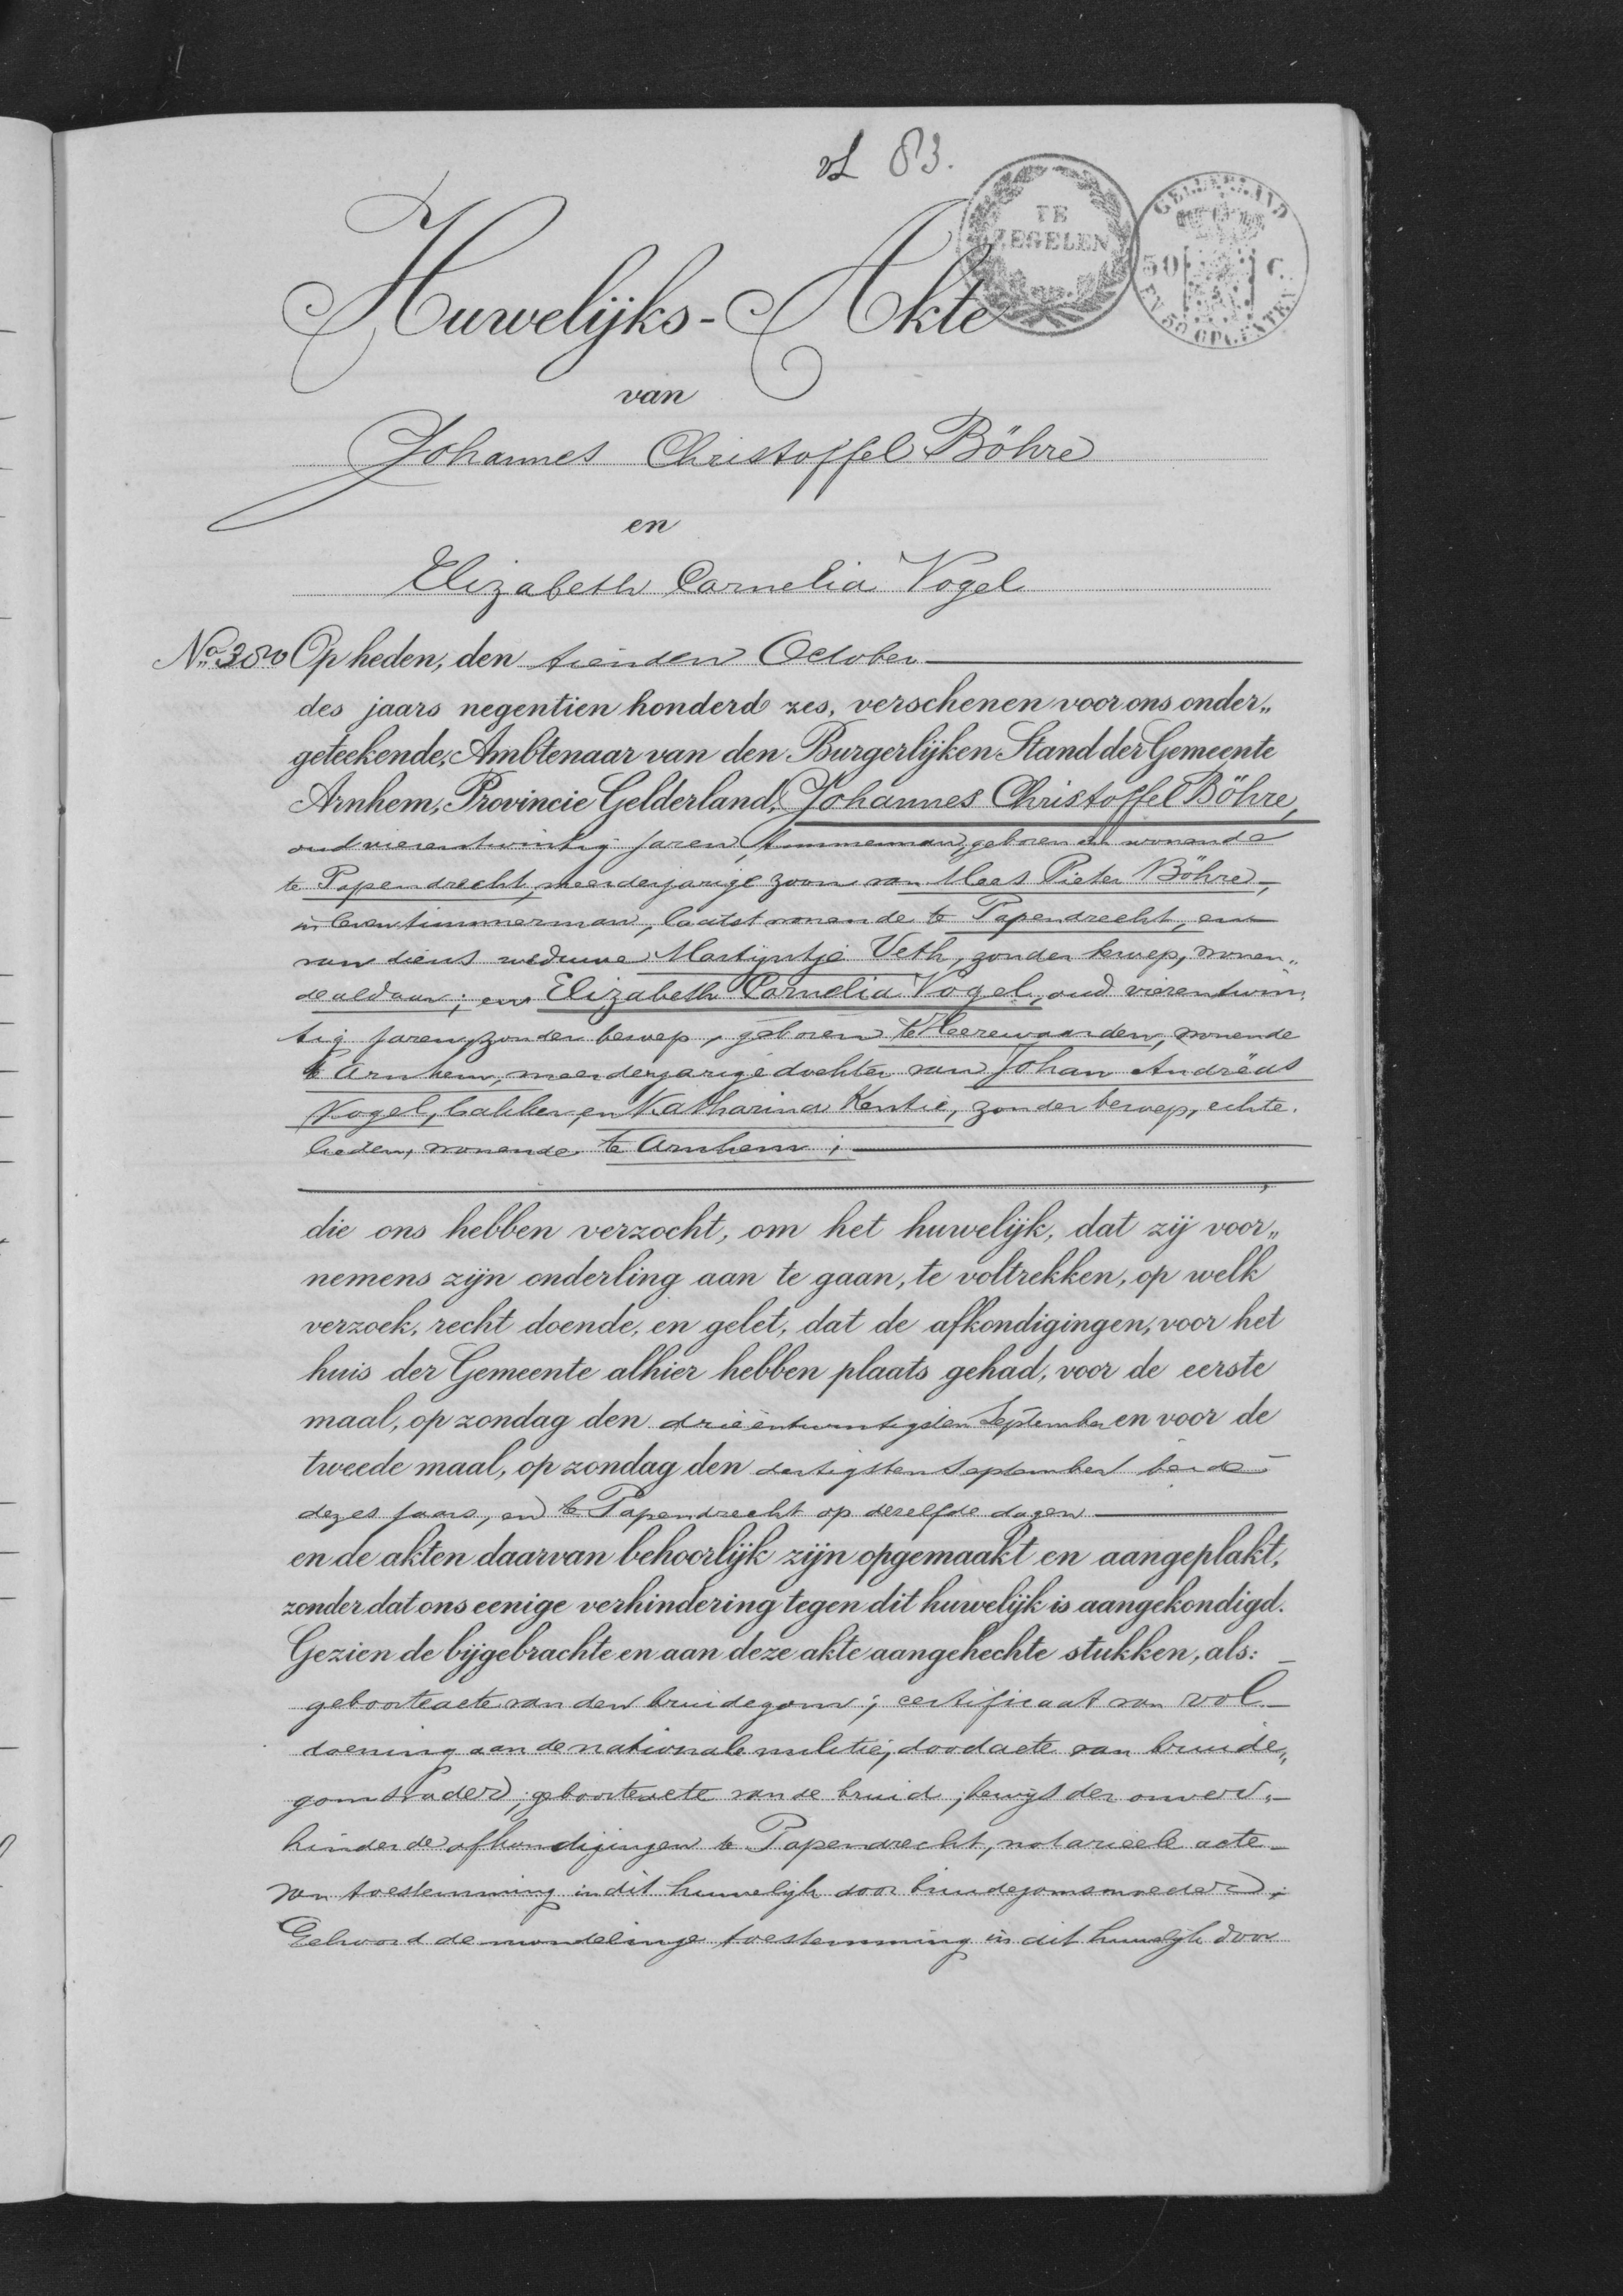 vL 83.
TE
ZEGELEN
GELDERLAND
50 C.
EN 50 OPCENTEN
Huwelijks-Akte
van
Johannes Christoffel Böhre
en
Elizabeth Cornelia Vogel
No. 380 Op heden, den tienden October
des jaars negentien honderd zes, verschenen voor ons onder„
geteekende, Ambtenaar van den Burgerlijken Stand der Gemeente
Arnhem, Provincie Gelderland, Johannes Christoffel Böhre,
oud vierentwintig jaren, timmerman, geboren en wonende
te Papendrecht, meerderjarige zoon van Mees Pieter Böhre,
in leven timmerman, laatst wonende te Papendrecht, en
van diens weduwe Martijntje Veth, zonder beroep, wonen„
de aldaar; en Elizabeth Cornelia Vogel, oud vierentwin„
tig jaren, zonder beroep, geboren te Heerewaarden, wonende
te Arnhem, meerderjarige dochter van Johan Andréas
Vogel, bakker, en Katharina Kentie, zonder beroep, echte.
lieden, wonende te Arnhem;
die ons hebben verzocht, om het huwelijk, dat zij voor„
nemens zijn onderling aan te gaan, te voltrekken, op welk
verzoek, recht doende, en gelet, dat de afkondigingen, voor het
huis der Gemeente alhier hebben plaats gehad, voor de eerste
maal, op zondag den drieëntwintigsten September en voor de
tweede maal, op zondag den dertigsten September beide
dezes jaars, en te Papendrecht op deselfde dagen
en de akten daarvan behoorlijk zijn opgemaakt en aangeplakt,
zonder dat ons eenige verhindering tegen dit huwelijk is aangekondigd.
Gezien de bijgebrachte en aan deze akte aangehechte stukken, als:
geboorteacte van den bruidegom; certificaat van vol
doening aan de nationale militie, doodacte van bruide„
goms vader, geboorteacte van de bruid, bewijs der onver„
hinderde afkondigingen te Papendrecht, notarieele acte
van toestemming in dit huwelijk door bruidegoms moeder;
Gehoord de mondelinge toestemming in dit huwelijk door